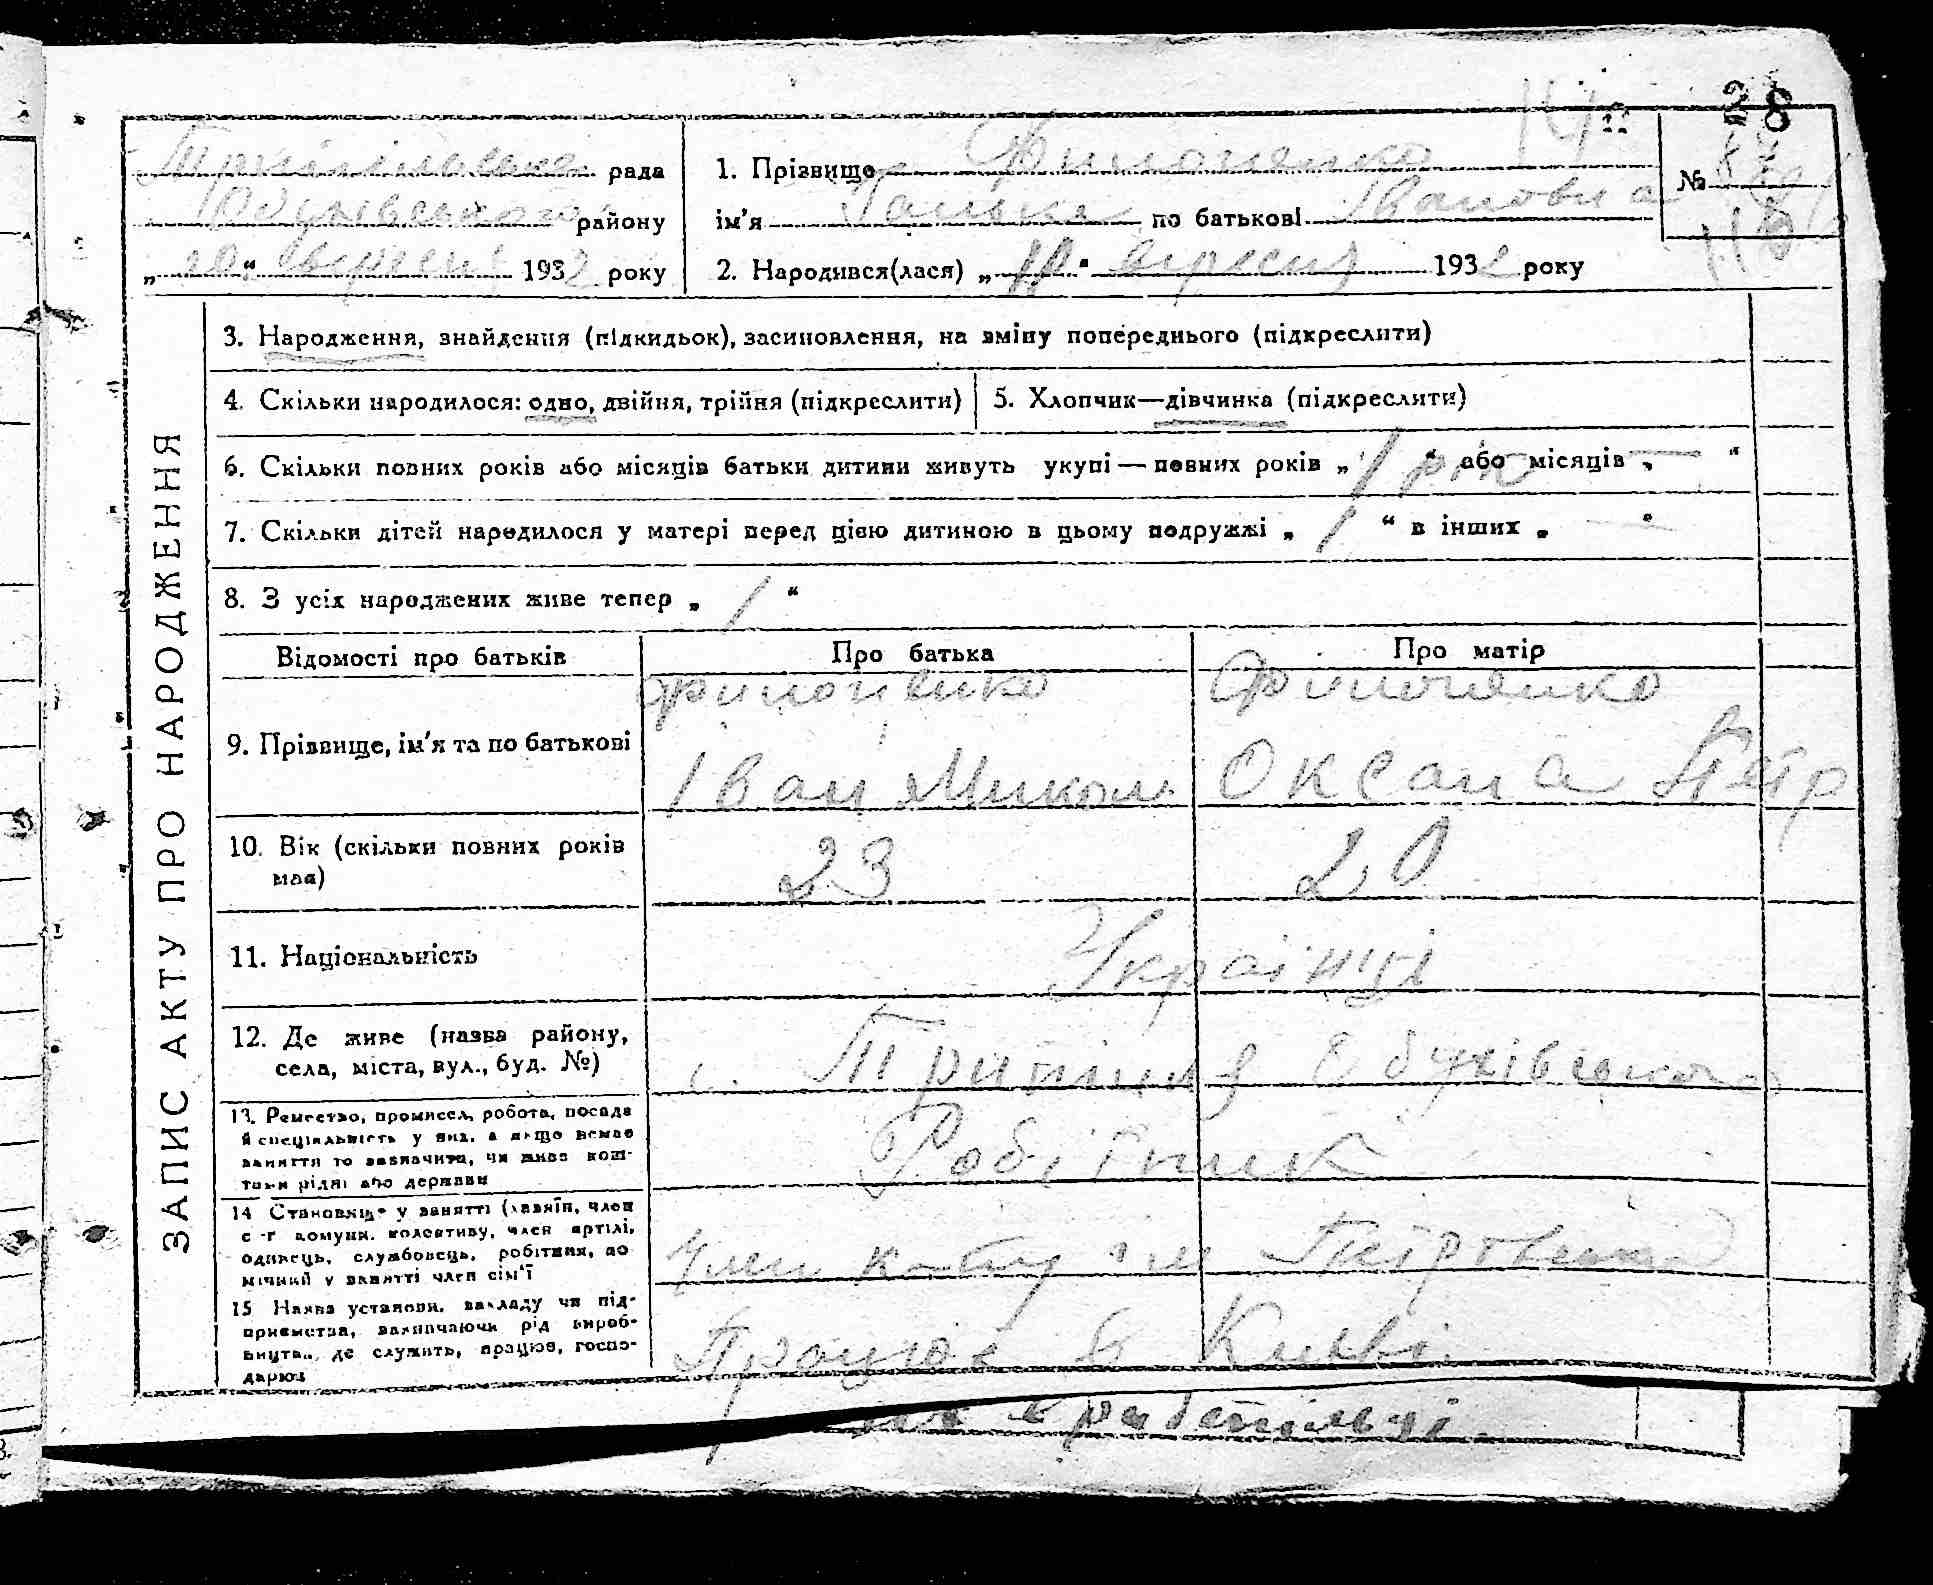 28
рада
1. Прізвище Филоненко
№
Обухівського району
ім'я Галька по батькові Івановна
„ 20 “ вересня 1932 року
2. Народився(лася) „ “ вересня 1932 року
ЗАПИС АКТУ ПРО НАРОДЖЕННЯ
3. Народження, знайдення (підкидьок), засиновлення, на зміну попереднього (підкреслити)
4. Скільки народилося: одно, двійня, трійня (підкреслити)
5. Хлопчик—дівчинка (підкреслити)
6. Скільки повних років або місяців батьки дитини живуть укупі — повних років „ 1 рік “ або місяців „ — “
7. Скільки дітей народилося у матері перед цією дитиною в цьому подружжі „ 1 “ в інших „ — “
8. З усіх народжених живе тепер „ 1 “
Відомості про батьків
Про батька
Про матір
9. Прізвище, ім'я та по батькові
Филоненко
Іван Микол.
Филоненко
Оксана Петр
10. Вік (скільки повних років
має)
23
20
11. Національність
Українці
12. Де живе (назва району,
села, міста, вул., буд. №)
с. Трипілля Обухівського
13. Ремество, промисел, робота, посада
й спеціяльність у них, а якщо немає
заняття то зазначити, чи живе кош-
тами рідні або держави
Робітник
14 Становище у занятті (хазяїн, член
с.-г комуни, колективу, член артілі,
одинець, службовець, робітник, по
мічний у занятті член сім'ї
Член
15 Назва установи, закладу чи під-
приємства, зазначаючи рід вироб-
ництва, де служить, працює, госпо-
дарює
Працює в Києві